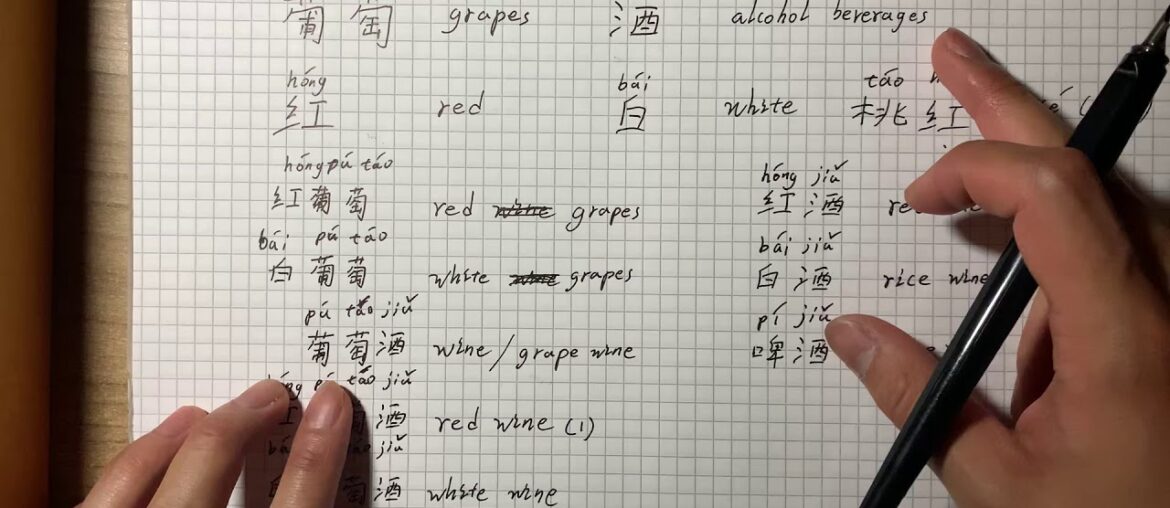 葡 萄 grapes 酒 alcohol beverages
hóng bái táo
红 red 白 white 桃 红
hóng pú táo hóng jiǔ
红 葡 萄 red grapes 红 酒
bái pú táo bái jiǔ
白 葡 萄 white grapes 白 酒 rice wine
pú táo jiǔ pí jiǔ
葡 萄 酒 wine / grape wine 啤 酒
táo jiǔ
萄 酒 red wine (1)
jiǔ
萄 酒 white wine